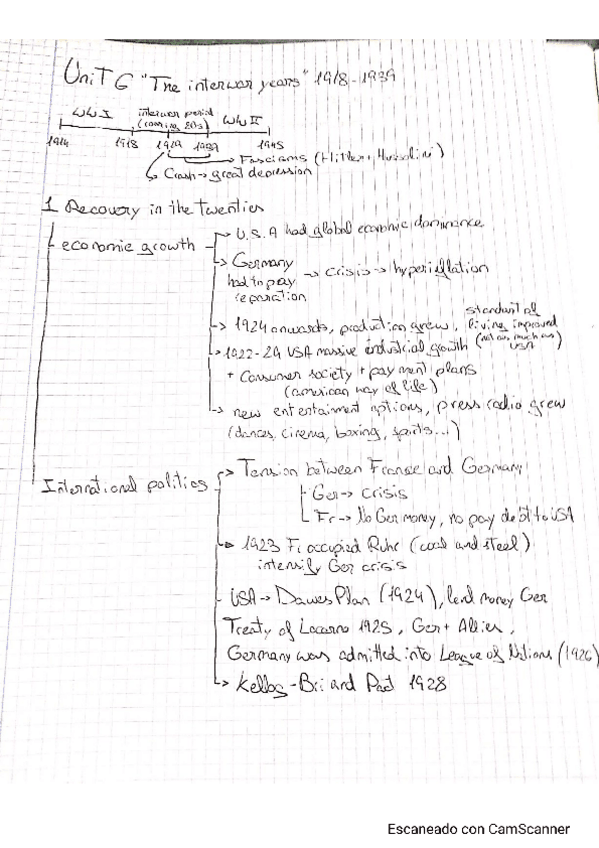 UNIT 6 "The interwar years" 1918-1939
WWI interwar period WWII
(roaring 20s)
1914 1918 1929 1939 1945
Fascisms (Hitler, Mussolini)
Crash → great depression
1 Recovery in the twenties
economic growth → U.S.A had global economic dominance
→ Germany
had to pay → crisis → hyperinflation
reparation
→ 1924 onwards, production grew, standard of
living improved
(not as much as
USA)
→ 1922-29 USA massive industrial growth
+ Consumer society + payment plans
(american way of life)
→ new entertaiment options, press radio grew
(dances, cinema, boxing, ...)
International politics → Tension between France and Germany
Ger → crisis
Fr → No Ger money, no pay debt to USA
→ 1923 Fr occupied Ruhr (coal and steel)
intensify Ger crisis
USA → Dawes Plan (1924), lend money Ger
Treaty of Locarno 1925, Ger + Allies,
Germany was admitted into League of Nations (1926)
→ Kellog-Briand Pact 1928
Escaneado con CamScanner